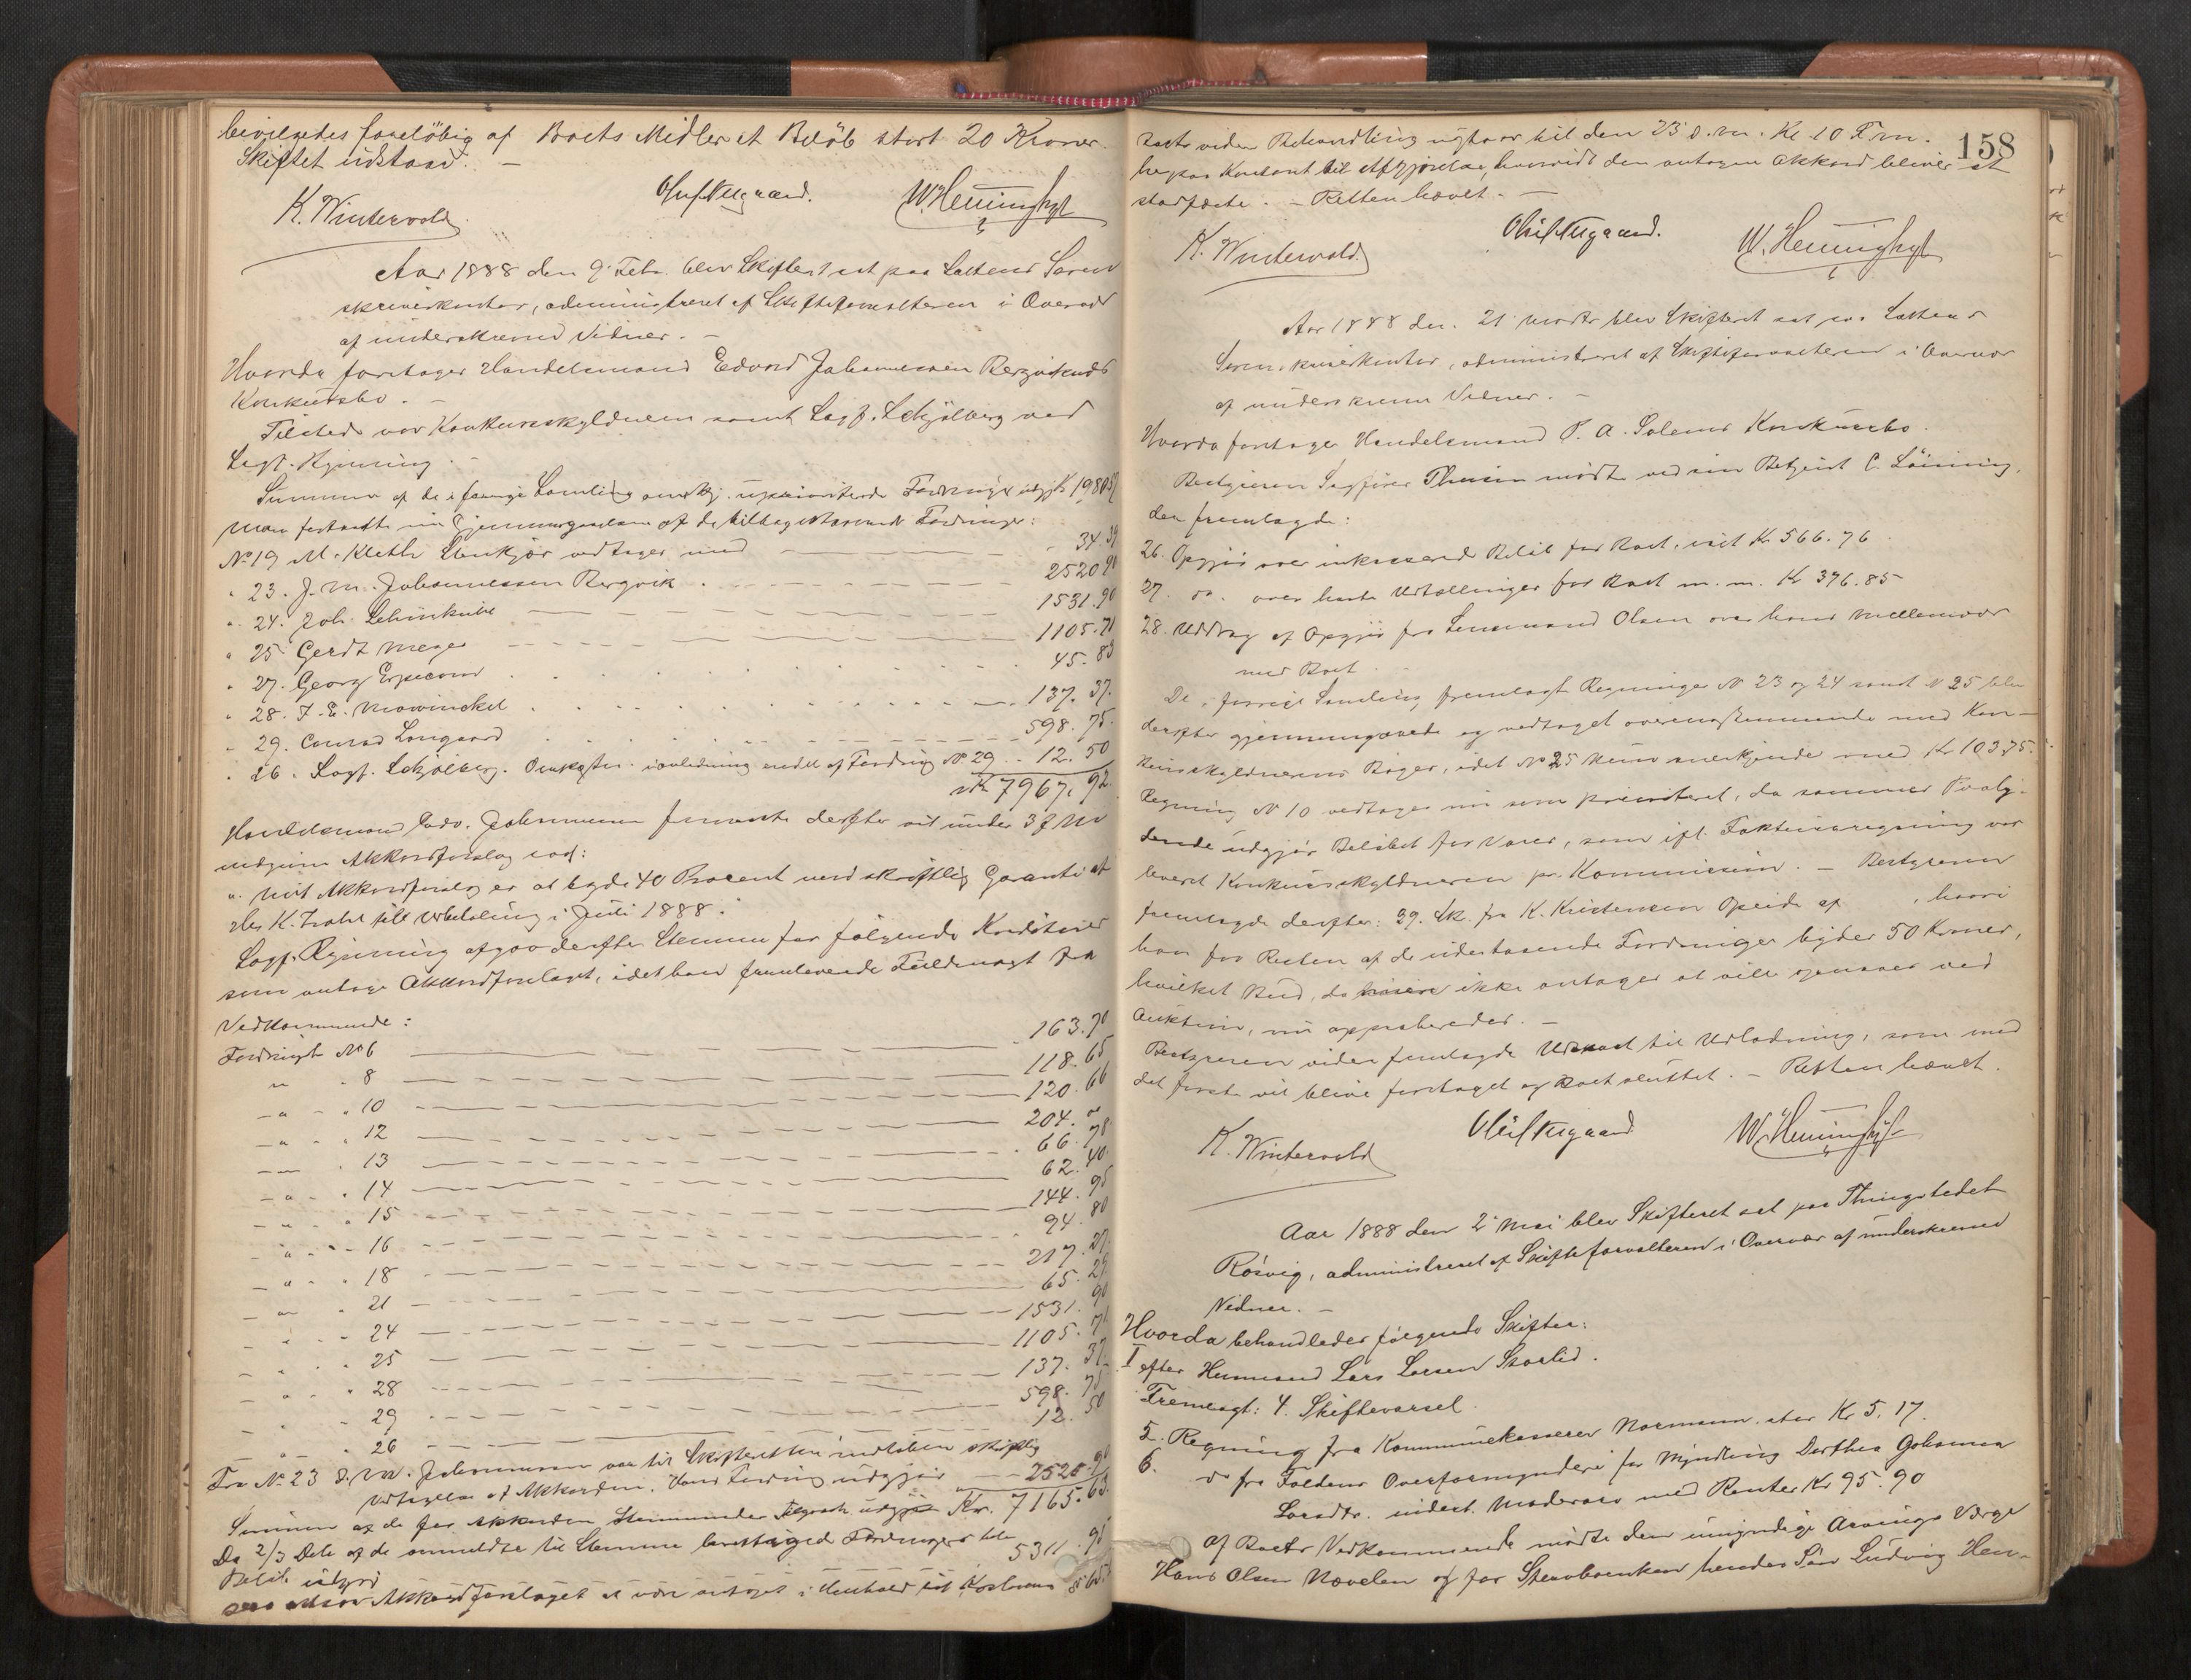 bevilgedes foreløbig af Boets Midler et Beløb stort 20 Kroner.
Skiftet udstaar. —
K. Wintervold. W. Henningh
Aar 1888 den 9' Febr. blev Skifteret sat paa Saltens Soren
skriverkontor, administreret af Skifteforvalteren i Overvær
af underskrevne Vidner. —
Hvorda foretages Handelsmand Edvard Johannessen Bergviks
Konkursbo. —
Tilstede var Konkursskyldneren samt Sagf. Schjølberg ved
Sagf. Rynning. —
Summen af de i forrige Samling anerkj. uprioriterede Fordringer udgj. Kr 1980
Man fortsatte nu Gjennemgaaelsen af de tilbagestaaende Fordringer:
No 19 M. Kleth Stenkjær vedtages med 34.39
" 23. J. M. Johannessen Bergvik . 2520.90
" 24. Joh. 1531.90
" 25 Gerdt Meyer 1105.71
" 27. Georg 45.83
" 28. F. E. Mowinckel 137.37.
" 29. Conrad Langaard 598.75.
" 26. Sagf. Schjølberg. Omkostn. i anledning af Fordring No 29 .. 12.50
Kr 7967.92.
Handelsmand Edv. Johannessen derefter sit under 3 f. M.
Akkordforslag saal:
"Mit Akkordforslag er at byde 40 Procent med skriftlig Garanti af
Hr K. Zahl til Udbetaling i Juli 1888."
Sagf. Rynning afgav derefter Stemme for følgende Kreditorer
som antage Akkordforslaget, idet han fremleverede Fuldmagt fra
Vedkommende:
Fordringh. No 6 163.70
" " 8 118.65
" " 10 120.66
" " 12 204.
" " 13 66.78
" " 14 62.40.
" " 15 144.95
" " 16 94.80
" " 18 217.27.
" " 21 65.29
" " 24 1531.90
" " 25 1105.71.
" " 28 137.37
" " 29 598.75
" " 26 12.50
Fra No 23 J. M. Johannessen var til Skifteretten indløben skriftlig
Vedtagelse af Akkorden. Hans Fordring udgjør 2520.90
Summen af de for Akkorden stemmende udgjør Kr. 7165.63.
Da 2/3 Dele af de anmeldte til Stemme berettigede Fordringers
Beløb udgjør 5311.95
Akkordforslaget at være antaget i Henhold til Kkslovens
158
Boets videre Behandling udstaar til den 23 d. m. Kl. 10 Fm.
her paa Kontoret til Afgjørelse, hvorvidt den antagne Akkord bliver at
stadfæste. — Retten hævet. —
K. Wintervold. W. Henningh
Aar 1888 den 21' Marts blev Skifteret sat paa Saltens
Sorenskriverkontor, administreret af Skifteforvalteren i Overvær
af underskrevne Vidner. —
Hvorda foretages Handelsmand P. A. Solems Konkursbo.
Bestyreren Sagfører mødte ved sin Betjent C. Lønning,
der fremlagde:
26. Opgjør over inkasserede Beløb for Boet, ialt Kr 566.76
27. do. over hans Udtællinger for Boet m. m. Kr 376.85
28. Uddrag af Opgjør fra Lensmand Olsen over hans Mellemvær
med Boet.
De i forrige Samling fremlagte Regninger No 23 og 24 samt No 25 blev
derefter gjennemgaaede og vedtaget overensstemmende med Kon-
kursskyldnerens Bøger, idet No 25 kuns anerkjendes med Kr 103.75.
Regning No 10 vedtages nu som prioriteret, da sammes Paaly-
dende udgjør Beløbet for Varer, som ifl. Fakturaregning var
leveret Konkursskyldneren pr. Kommission. — Bestyreren
fremlagde derefter: 29. Sk. fra K. Kristensen Opeide af , hvori
han for Resten af de udestaaende Fordringer byder 50 Kroner,
hvilket Bud, da ikke antages at ville opnaaes ved
Auktion, nu approberedes. —
Bestyreren videre fremlagde Udkast til Udlodning, som med
det første vil blive foretaget og Boet sluttet. — Retten hævet.
K. Wintervold W. Henningh
Aar 1888 den 2' Mai blev Skifteret sat paa Thingstedet
Røsvig, administreret af Skifteforvalteren i Overvær af underskrevne
Vidner. —
Hvorda behandledes følgende Skifter:
I efter Husmand Lars Larsen Storlid.
Fremlagt: 4. Skiftevarsel.
5. Regning fra Kommunekasserer Normann stor Kr 5.17.
6. do fra Foldens Overformynderi for Myndling Dorthea Johanna
Larsdtr. indest. Mødrearv med Renter Kr 95.90
Af Boets Vedkommende mødte den umyndige Arvings Værge
Hans Olsen Nævelen og for Stervboenken hendes Søn Ludvig Hen-